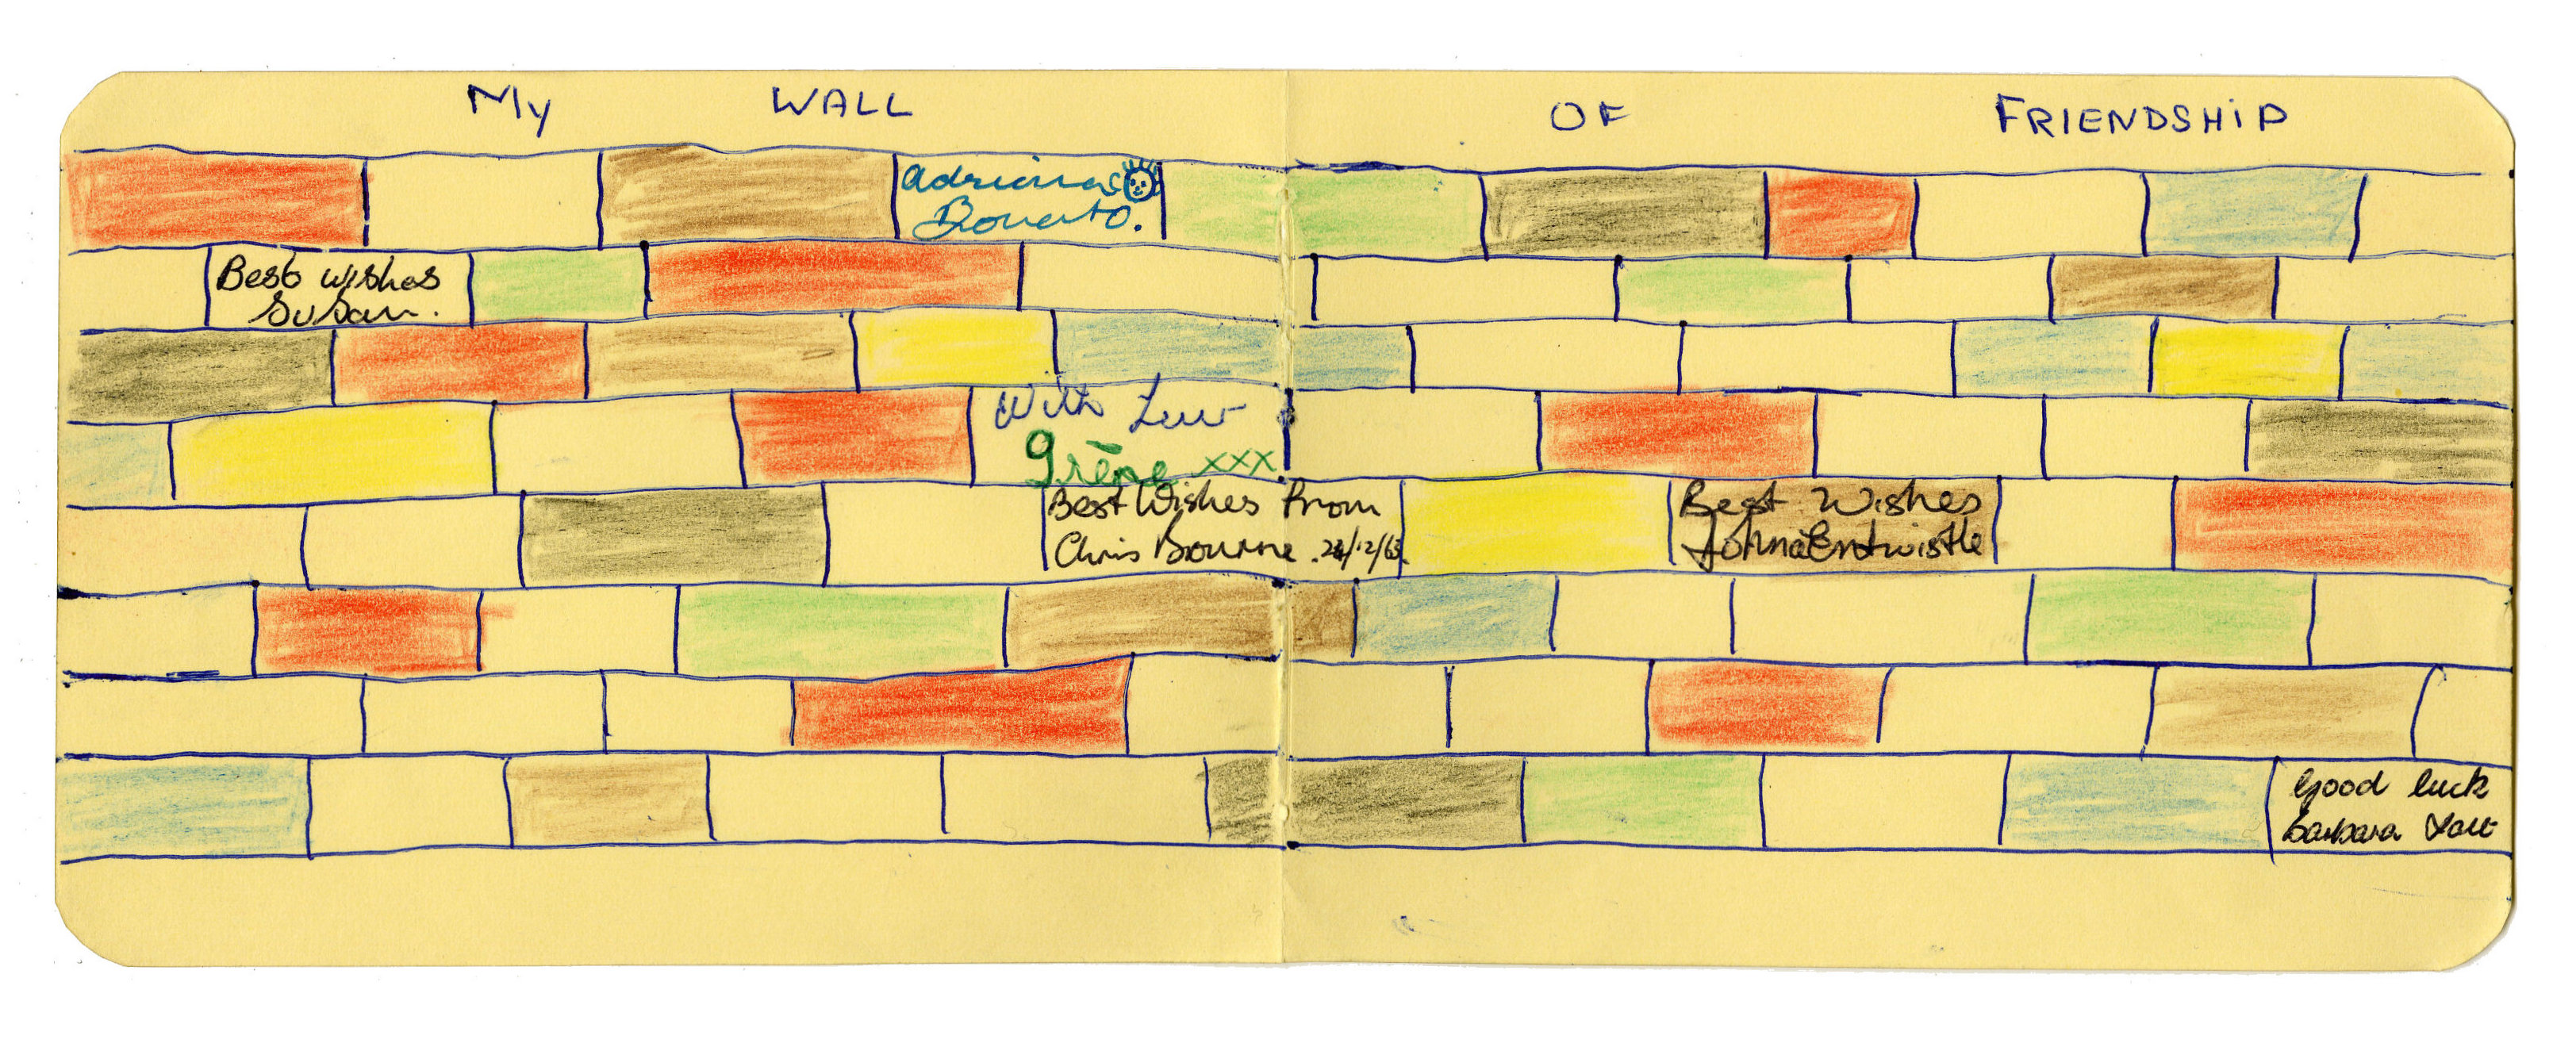 My WALL OF FRIENDSHIP
Adriana
Best wishes
Susan.
With Luv
Irēne xxx
Best Wishes From
Chris Bourne
Best Wishes
John Entwistle
Good luck
barbara